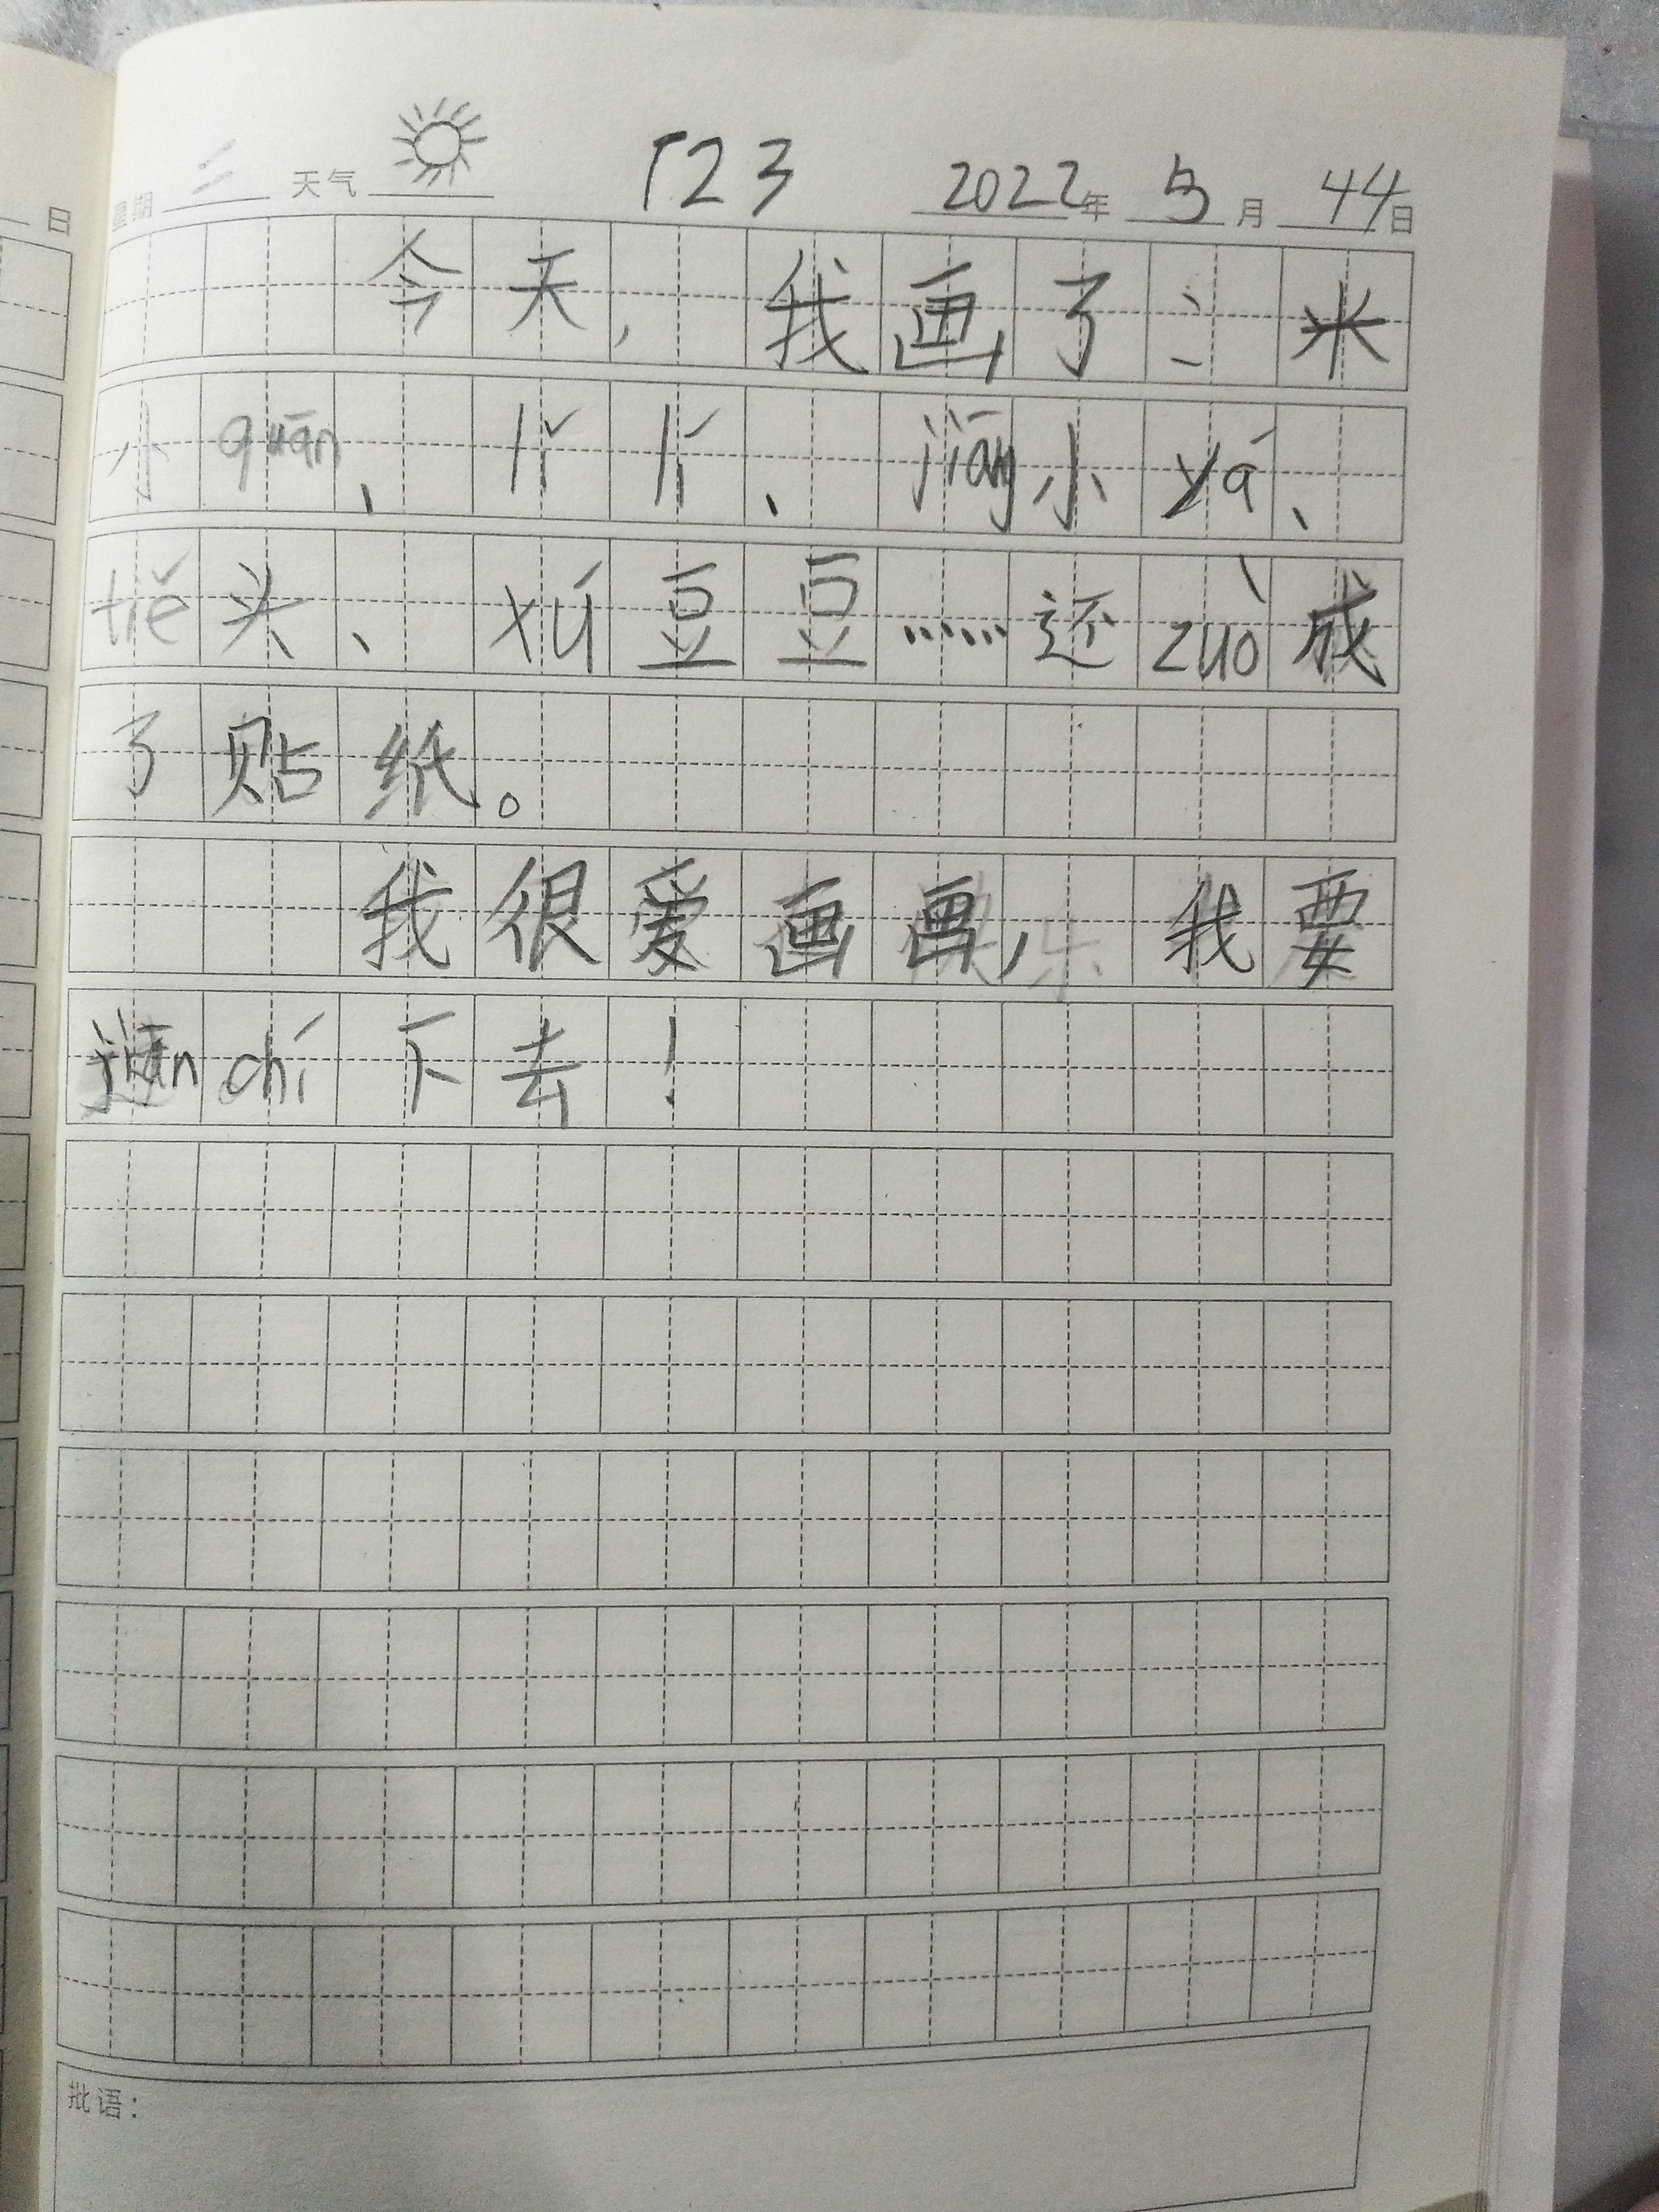 日
星期 二 天气 123 2022年 5月 44日
今天，我画了：米
小quān、lǐ lí、jiāng小yá、
tiě头、xú豆豆……还zuò成
了贴纸。
我很爱画画，我要
jiān chí下去！
批语：